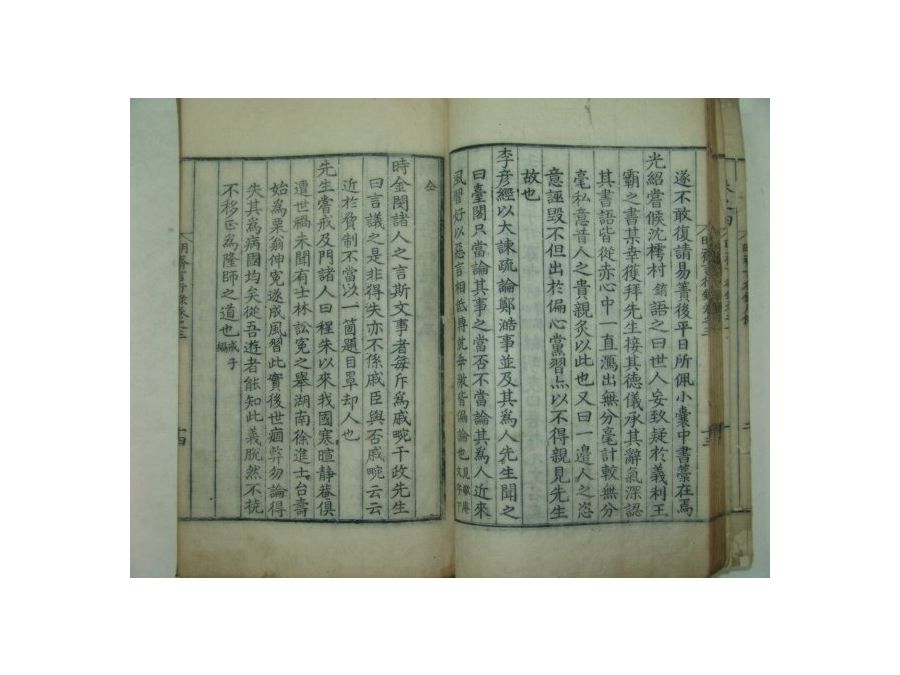 遂不敢復請易簀後平日所佩小囊中書藁在焉
光紹嘗候沈樗村錥語之曰世人妄致疑於義利王
霸之書某幸獲拜先生接其德儀承其辭氣深認
其書語皆從赤心中一直瀉出無分毫計較無分
毫私意昔人之貴親炙以此也又曰一邊人之恣
意誣毀不但出於偏心黨習亦以不得親見先生
故也
李彦經以大諫疏論鄭澔事並及其爲人先生聞之
曰臺閣只當論其事之當否不當論其爲人近來
風習好以惡言相詆轉就乖激皆偏論也
時金閔諸人之言斯文事者每斥爲戚畹干政先生
曰言議之是非得失亦不係戚臣與否戚畹云云
近於脅制不當以一箇題目罩却人也
先生嘗戒及門諸人曰程朱以來我國寒暄靜菴俱
遭世禍未聞有士林訟寃之擧湖南徐進士台壽
始爲栗翁伸寃遂成風習此實後世痼弊勿論得
失其爲病國均矣從吾遊者能知此義脫然不撓
不移正爲隆師之道也
明齋言行錄卷之三
十四